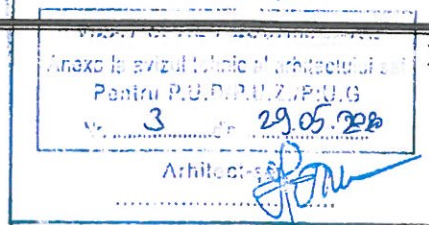 Anexa la avizul tehnic al arhitectului șef
Pentru P.U.D/P.U.Z./P.U.G
Nr. 3 din 29.05.2020
Arhitect-șef